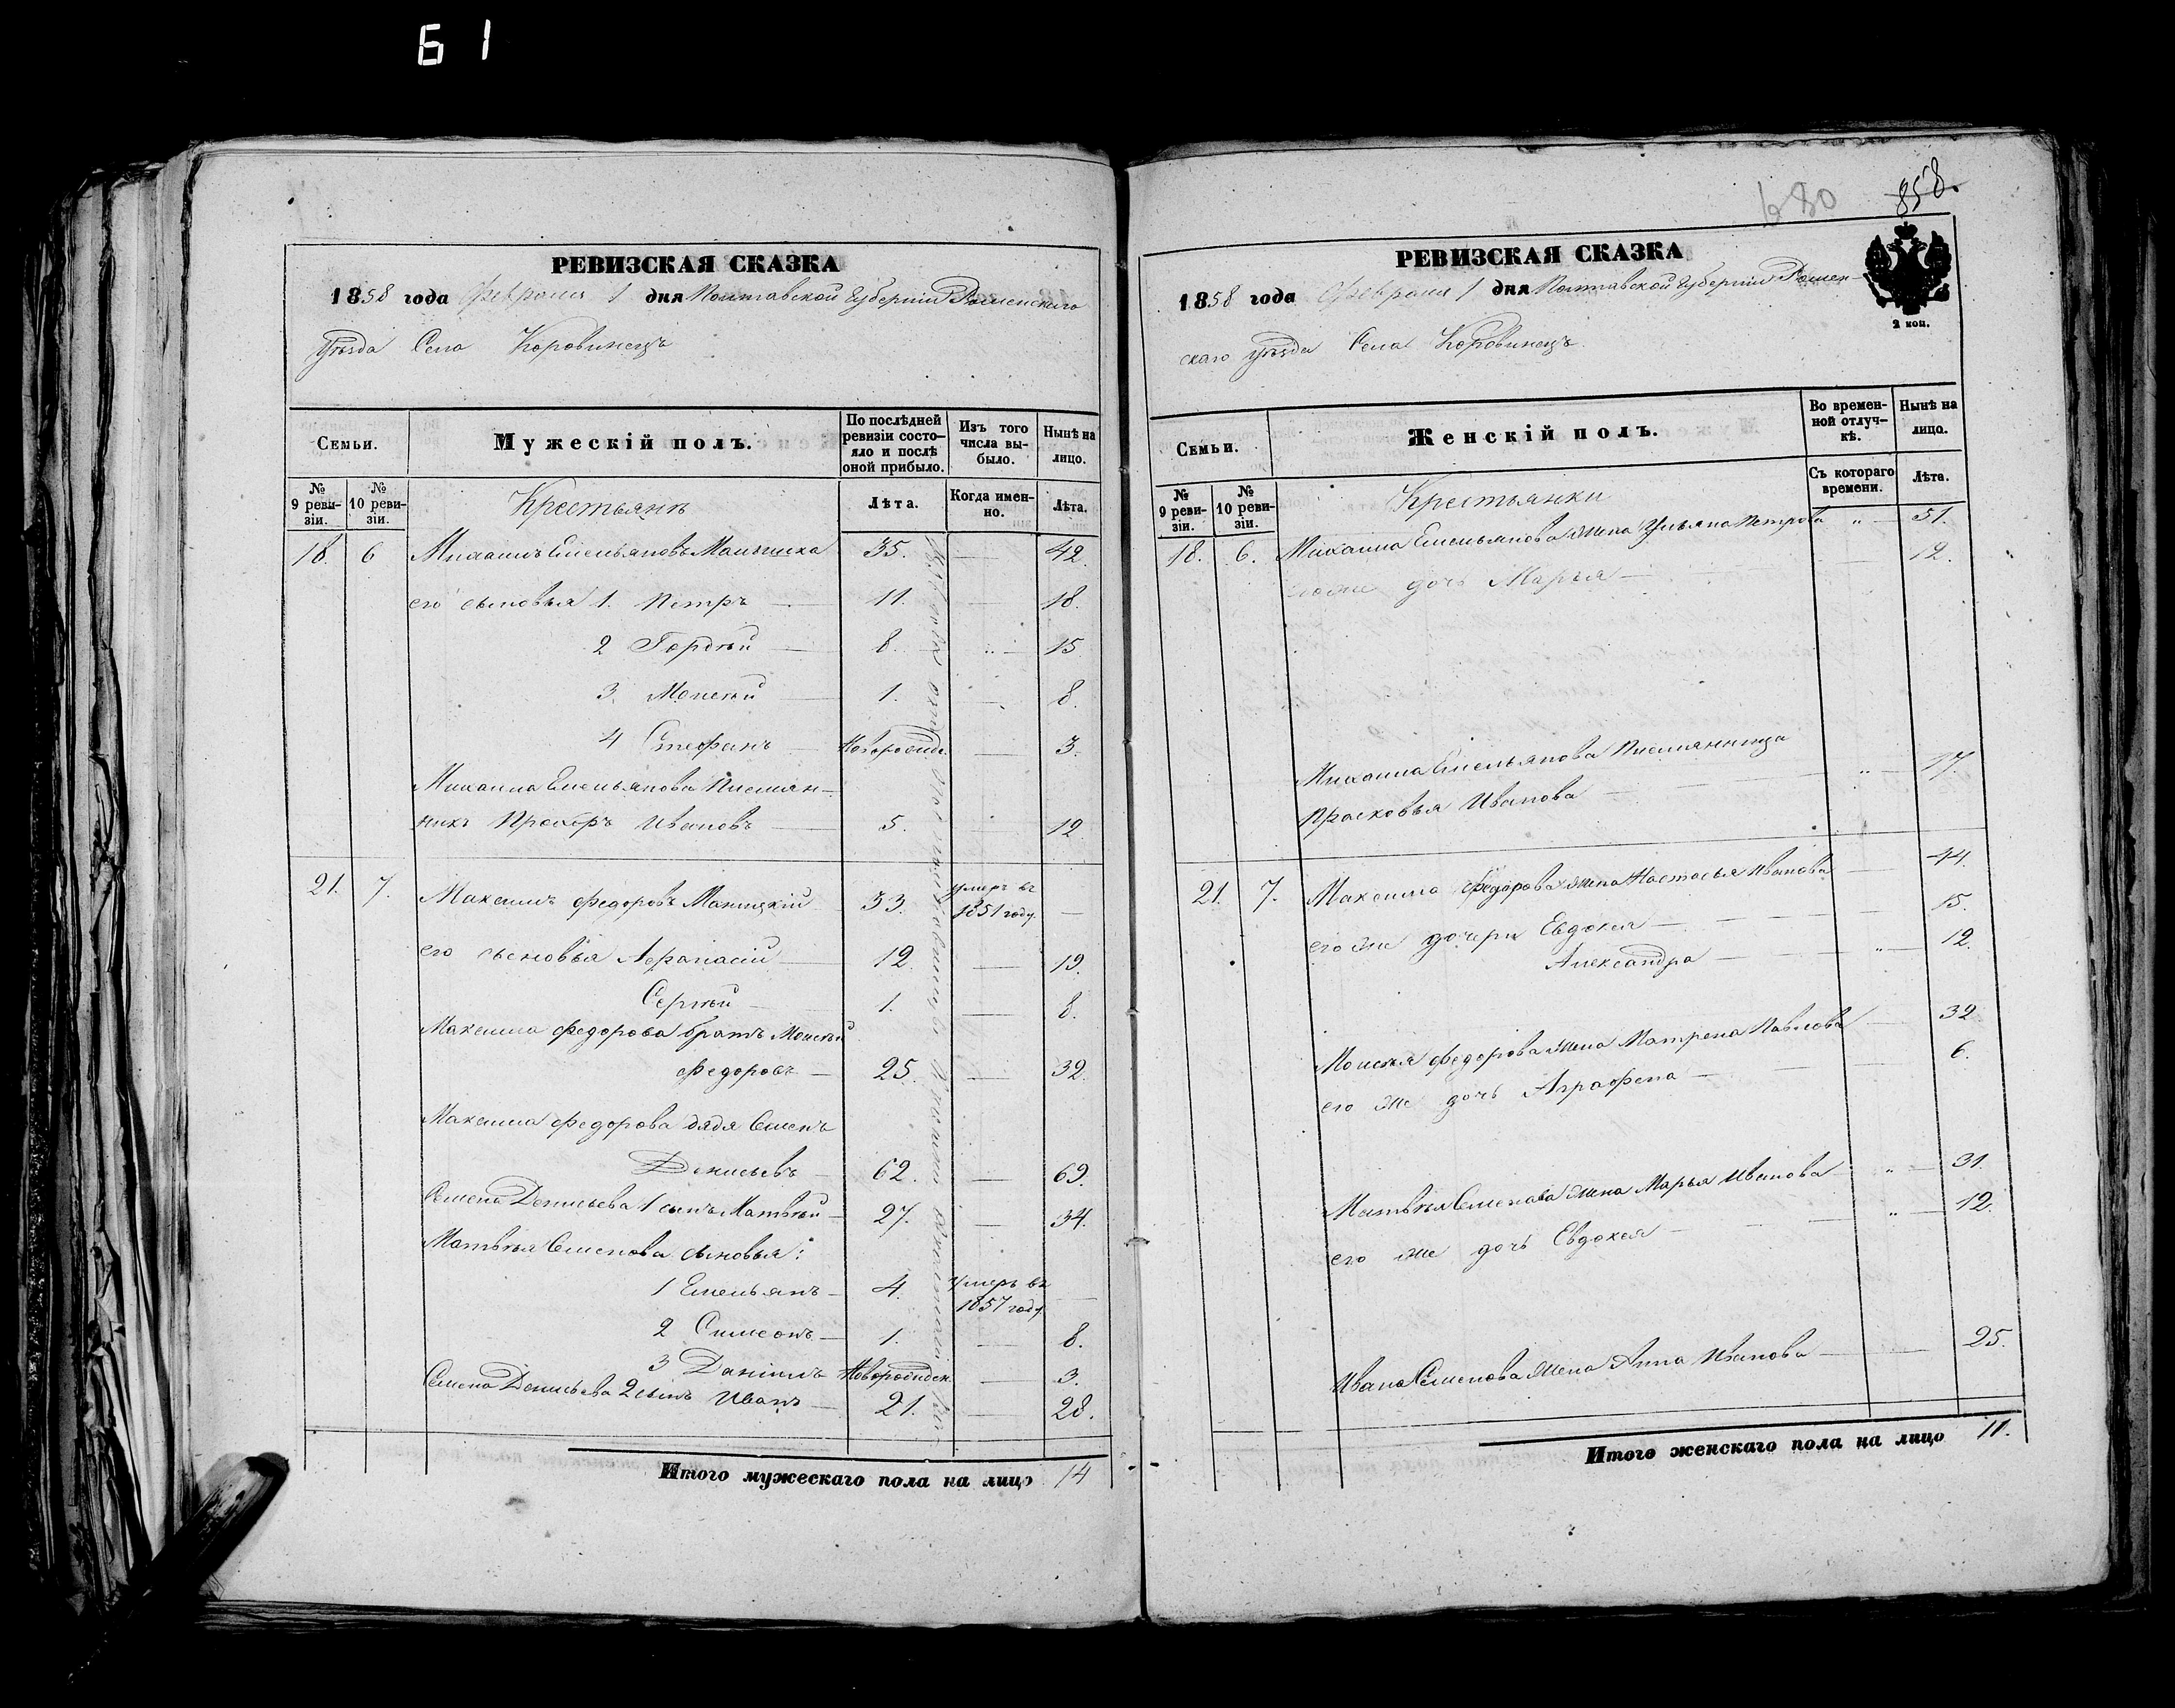 61
РЕВИЗСКАЯ СКАЗКА
1858 года Февраля 1 дня Полтавской Губерніи Роменскаго
Уѣзда Села Коровинецъ
Семьи.
Мужескій полъ.
По послѣдней ревизіи состояло и послѣ оной прибыло.
Изъ того числа выбыло.
Нынѣ на лицо.
№ 9 ревизіи.
№ 10 ревизіи.
Крестьянъ
Лѣта.
Когда именно.
Лѣта.
18. 6 Михаилъ Емельяновъ 35. — 42.
его сыновья 1. Петръ — 11. — 18.
2 Гордѣй — 8. — 15
3. Моисѣй — 1. — 8.
4 Стефанъ — Новорожд. — 3.
Михаила Емельянова племян-
никъ Прохоръ Ивановъ — 5. 12.
21. 7. Максимъ Федоровъ 33. умеръ въ 1851 году. —
его сыновья Афанасій — 12. — 19.
Сергѣй — 1. — 8.
Максима Федорова братъ Моисѣй
Федоровъ — 25. — 32.
Максима Федорова дядя Семенъ
Денисьевъ — 62. — 69.
Семена Денисьева 1 сынъ Матвѣй — 27. — 34.
Матвѣя Семенова сыновья:
1 Емельянъ — 4. умеръ въ 1857 году. —
2 Симеонъ — 1. — 8.
3 Даніилъ Новорожден. — 3.
Семена Денисьева 2 сынъ Иванъ — 21. — 28.
Итого мужескаго пола на лицо 14
680 858.
РЕВИЗСКАЯ СКАЗКА
1858 года Февраля 1 дня Полтавской Губерніи Ромен-
2 коп.
скаго Уѣзда Села Коровинецъ
Семьи.
Женскій полъ.
Во временной отлучкѣ.
Нынѣ на лицо.
№ 9 ревизіи.
№ 10 ревизіи.
Крестьянки
Съ котораго времени.
Лѣта.
18. 6. Михаила Емельянова жена Ульяна Петрова „ — 51.
его же дочь Марья — 12.
Михаила Емельянова племянница
Прасковья Иванова — „ — 17.
21. 7. Максима Федорова жена Настасья Иванова — 44.
его же дочери Евдокея — 15.
Александра — „ — 12.
Моисея Федорова жена Матрена Павлова — 32.
его же дочь Аграфена — 6.
Матвѣя Семенова жена Марья Иванова — „ — 31.
его же дочь Евдокея — „ — 12.
Ивана Семенова жена Анна Иванова — 25.
Итого женскаго пола на лицо 11.